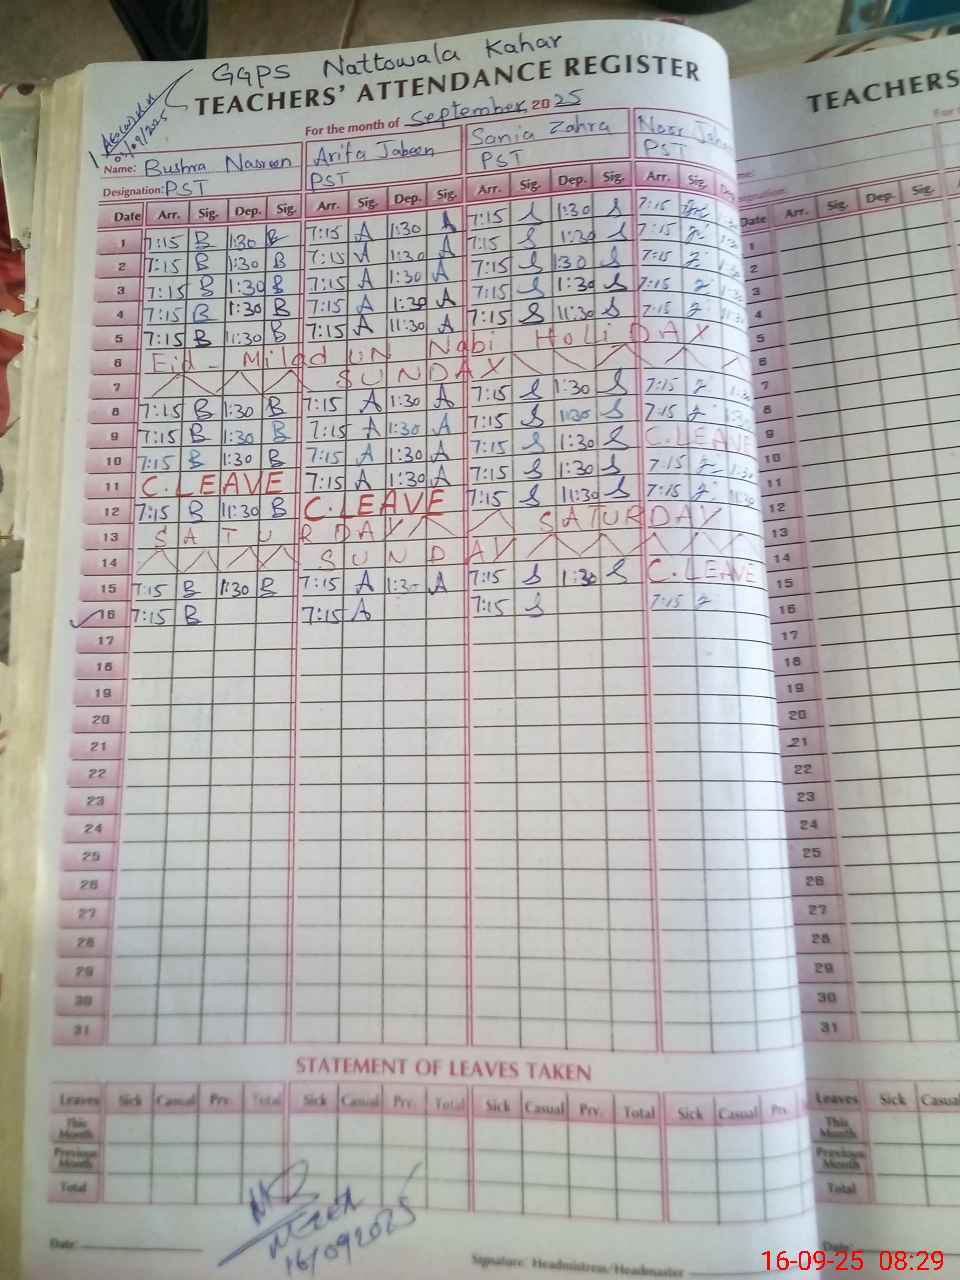 GGPS Nattowala Kahar
TEACHERS' ATTENDANCE REGISTER
For the month of September, 2025
Name: Bushra Nasreen Arifa Jabeen Sania Zahra
Designation: PST PST PST PST
Date Arr. Sig. Dep. Sig. Arr. Sig. Dep. Sig. Arr. Sig. Dep. Sig. Arr. Sig.
1 7:15 B 1:30 B 7:15 A 1:30 A 7:15 S 1:30 S 7:15
2 7:15 B 1:30 B 7:15 A 1:30 A 7:15 S 1:30 S 7:15
3 7:15 B 1:30 B 7:15 A 1:30 A 7:15 S 1:30 S 7:15
4 7:15 B 1:30 B 7:15 A 1:30 A 7:15 S 1:30 S 7:15
5 7:15 B 11:30 B 7:15 A 11:30 A 7:15 S 11:30 S 7:15
6 Eid - Milad un Nabi HoLiDAY
7 SUNDAY
8 7:15 B 1:30 B 7:15 A 1:30 A 7:15 S 1:30 S 7:15
9 7:15 B 1:30 B 7:15 A 1:30 A 7:15 S 1:30 S 7:15
10 7:15 B 1:30 B 7:15 A 1:30 A 7:15 S 1:30 S C.LEAVE
11 C.LEAVE 7:15 A 1:30 A 7:15 S 1:30 S 7:15
12 7:15 B 11:30 B C.LEAVE 7:15 S 11:30 S 7:15
13 SATURDAY SATURDAY
14 SUNDAY
15 7:15 B 1:30 B 7:15 A 1:30 A 7:15 S 1:30 S C.LEAVE
16 7:15 B 7:15 A 7:15 S 7:15
17
18
19
20
21
22
23
24
25
26
27
28
29
30
31
STATEMENT OF LEAVES TAKEN
Leaves Sick Casual Prv. Total Sick Casual Prv. Total Sick Casual Prv. Total Sick Casual
This Month
Previous Month
Total
16/09/2025
Date:
Signature: Headmistress/Headmaster
TEACHERS
Date Arr. Sig. Dep. Sig.
1
2
3
4
5
6
7
8
9
10
11
12
13
14
15
16
17
18
19
20
21
22
23
24
25
26
27
28
29
30
31
Leaves Sick
This Month
Previous Month
Total
16-09-25 08:29